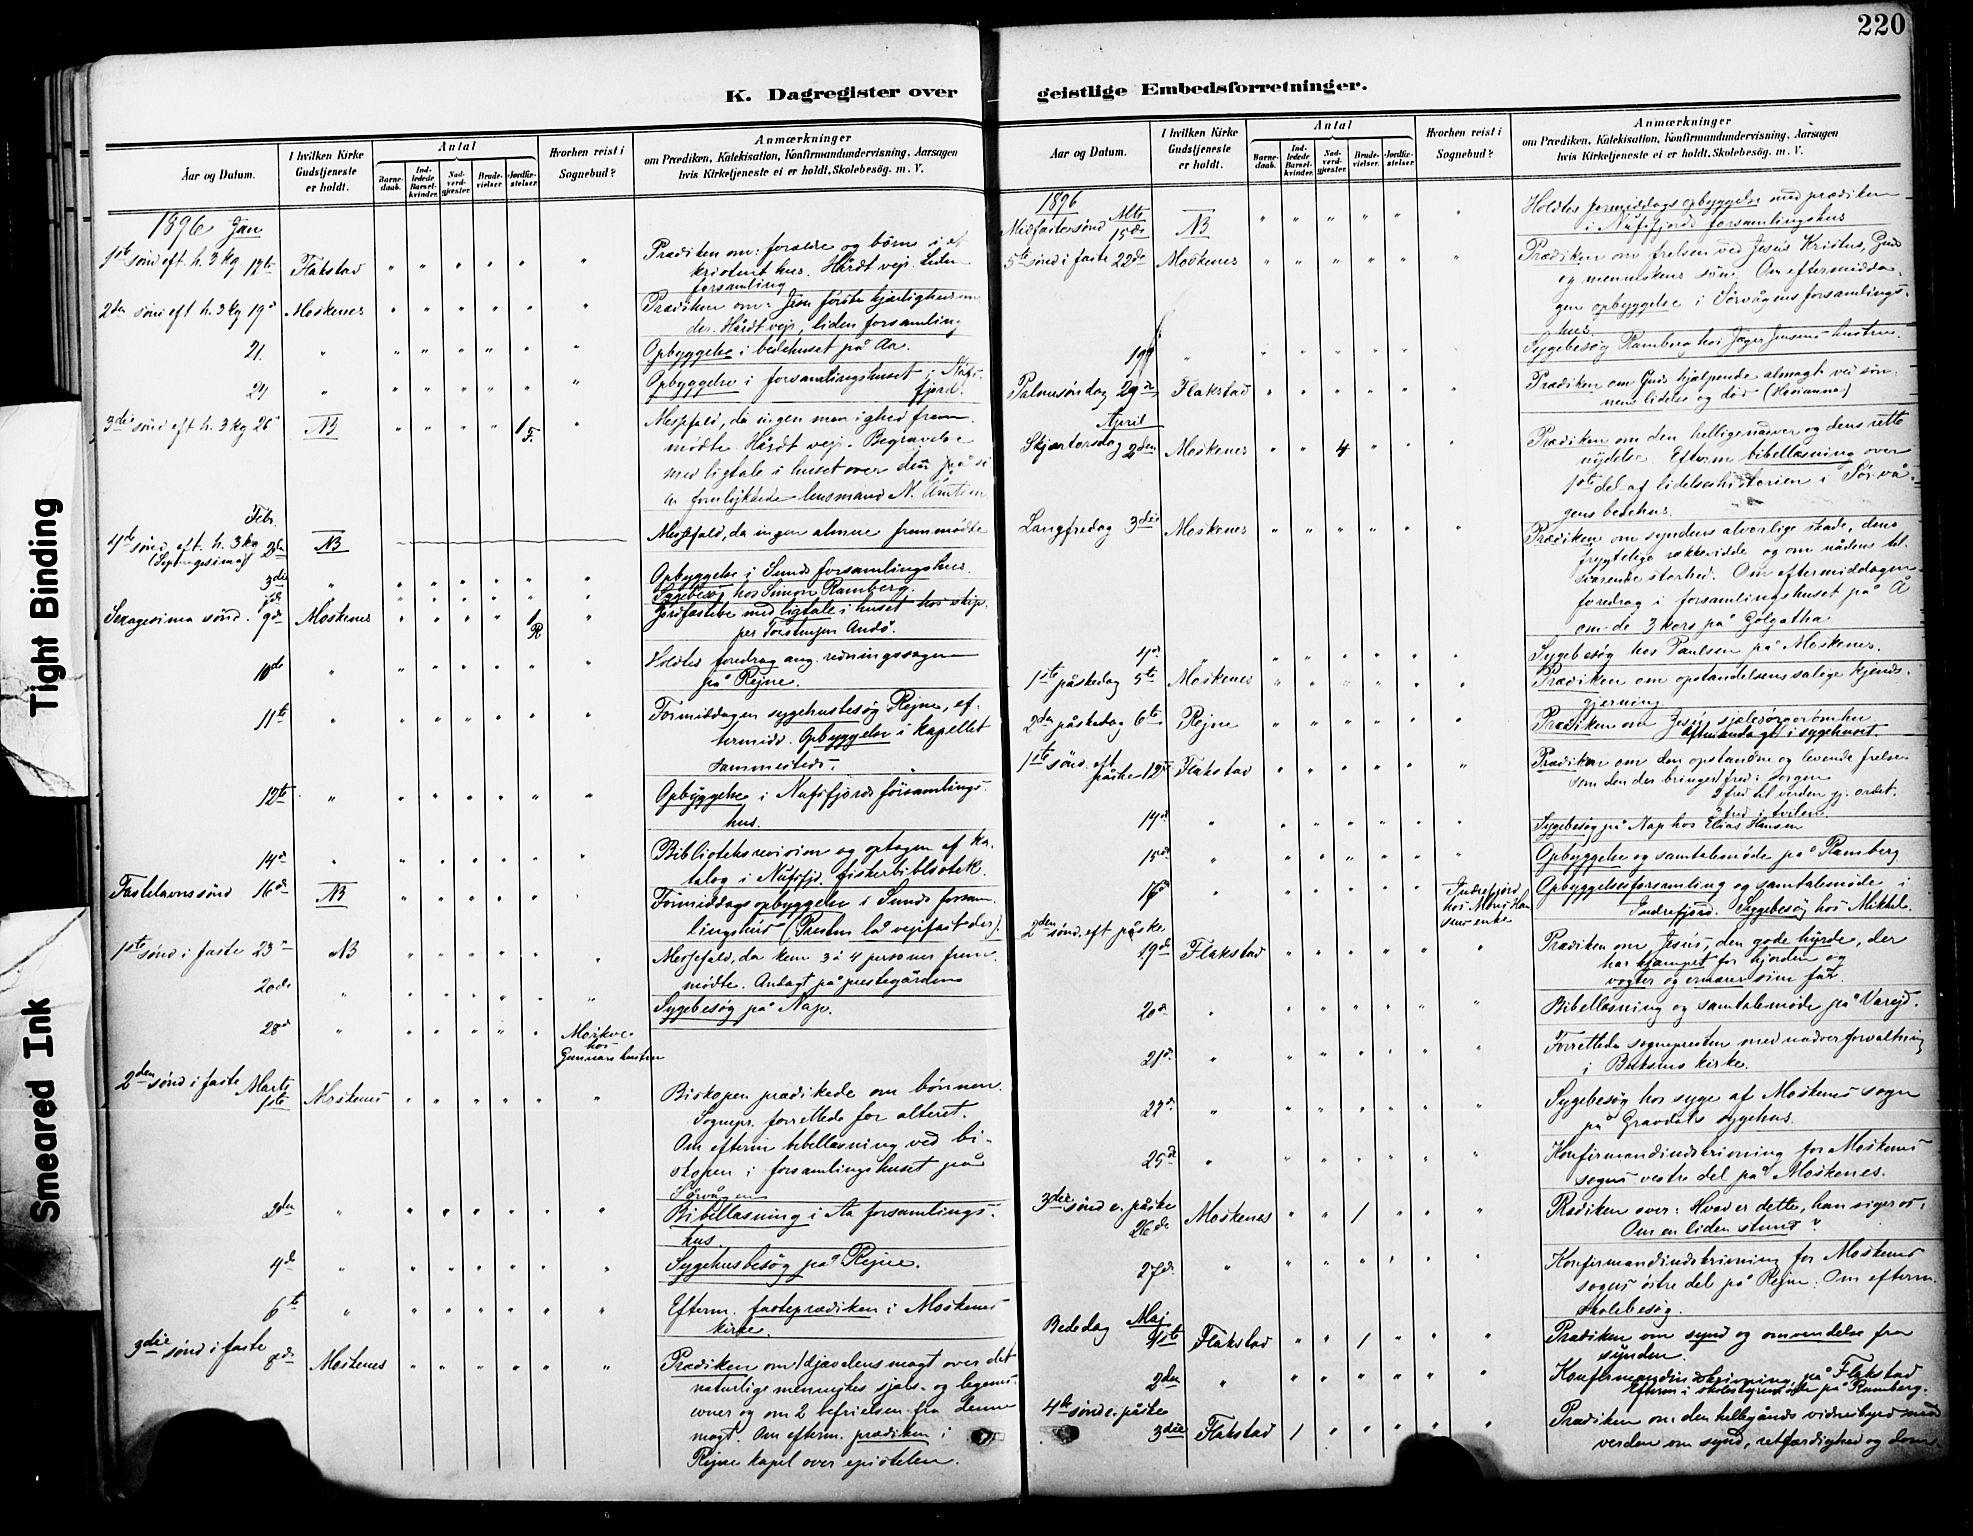 220
K. Dagregister over
Aar og Datum.
I hvilken Kirke
Gudstjeneste
er holdt.
Antal
Barne-
daab.
Ind-
ledede
Barsel-
kvinder.
Nad-
verd-
gjester.
Brude-
vielser.
Jordfæ-
stelser.
Hvorhen reist i
Sognebud?
Anmærkninger
om Prædiken, Katekisation, Konfirmandundervisning, Aarsagen
hvis Kirketjeneste ei er holdt, Skolebesög. m. V.
1896 Jan
1ste sönd eft. h. 3 kg 12te Flakstad " " " " " " Prædiken om: forældre og börn i et
kristent hus. Hårdt vejr. Liden
forsamling
2den sönd eft h. 3 kg 19d Moskenes " " " " " " Prædiken om: Jesu förste
Hårdt vejr, liden forsamling
21. " " " " " " " Opbyggelse i bedehuset på Aa.
24 " " " " " " " Opbyggelse i forsamlingshuset i Nufs-
fjord.
3die sönd eft h. 3 kg 26d NB " " " " 1 F. " Messefald, da ingen menighed frem
mödte. Hårdt vejr. Begravelse
med ligtale i huset over den på
forulykkede husmand N.
Febr.
4de sönd. eft. h. 3 kg 2den NB Messefald, da ingen almue fremmödte
(Septuagesima)
3die " " " " " " " Opbyggelse i Sunds forsamlingshus.
" " " " " " Sygebesög hos Simon Ramberg.
Sexagesima sönd. 9de Moskenes " " " " 1 R " Jordfæstelse med ligtale i huset hos skip-
per Torstensen Andö.
10de " " " " " " " Holdtes foredrag ang. redningssagen
på Rejne.
11te " " " " " " " Formiddagen sygehusbesög Rejne, ef-
termidd. Opbyggelse i kapellet
sammesteds.
12te " " " " " " " Opbyggelse i Nufsfjords forsamlings-
hus.
14d " " " " " " " Biblioteksrevision og optagen af ka-
talog i Nufsfjd. fiskerbibliotek.
Fastelavnssönd 16de NB " " " " " " Formiddagsopbyggelse i Sunds forsam-
lingshus (Presten lå vejrfast der).
1ste sönd i faste 23d NB " " " " " " Messefald, da kun 3 à 4 personer frem-
mödte. Andagt på prestegården
" " " " " " " Sygebesög på Nap.
28d " " " " " " Moskenes
hos
Gunnars hustru
2den sönd i faste Marts
1ste Moskenes " " " " " " Biskopen prædikede om bönnen.
Sognepr. forrettede for alteret.
Om efterm bibellæsning ved bi-
skopen i forsamlingshuset på
Sörvågen
2den " " " " " " " Bibellæsning i Aa forsamlings-
hus.
4de " " " " " " " Sygehusbesög på Rejne.
6te " " " " " " " Efterm. fasteprædiken i Moskenes
kirke.
3die sönd i faste 8de Moskenes " " " " " " Prædiken om 1 djævelens magt over det
naturlige menneskes sjæls- og legems-
evner og om 2 befrielsen fra denne
magt. Om efterm. prædiken i
Rejne kapel over epistelen.
geistlige Embedsforretninger.
Aar og Datum.
I hvilken Kirke
Gudstjeneste
er holdt.
Antal
Barne-
daab.
Ind-
ledede
Barsel-
kvinder.
Nad-
verd-
gjester.
Brude-
vielser.
Jordfæ-
stelser.
Hvorhen reist i
Sognebud?
Anmærkninger
om Prædiken, Katekisation, Konfirmandundervisning, Aarsagen
hvis Kirketjeneste ei er holdt, Skolebesög. m. V.
1896
Midfastesönd 15de NB " " " " " " Holdtes formiddagsopbyggelse med prædiken
i Nufsfjords forsamlingshus
5te sönd i faste 22de Moskenes " " " " " " Prædiken om frelsen ved Jesus Kristus, Guds
og menneskens sön. Om eftermidda-
gen opbyggelse i Sörvågens forsamlings-
hus.
19d " " " " " " " Sygebesög Ramberg hos Jæger Jensens hustru
Palmesöndag 29de Flakstad " " " " " " Prædiken om Guds hjælpende almagt ved sön-
nens lidelse og död (Hosianna)
April
Skjærtorsdag 2den Moskenes " " 4 " " " Prædiken om den hellige nadver og dens rette
nydelse. Efterm bibellæsning over
1ste del af lidelseshistorien i Sörvå-
gens bedehus.
Langfredag 3die Moskenes " " " " " " Prædiken om syndens alvorlige skade, dens
frygtelige rækkevidde og om nådens til-
svarende storhed. Om eftermiddagen
foredrag i forsamlingshuset på Å
om de 3 kors på Golgatha
4d " " " " " " " Sygebesög hos Paulsen på Moskenes.
1ste påskedag 5te Moskenes " " " " " " Prædiken om opstandelsens salige kjends-
gjerning
2den påskedag 6te Rejne " " " " " " Prædiken om Jesu sjælesörgerömhed
Aftenandagt i sygehuset
1ste sönd. eft
påske 12te Flakstad " " " " " " Prædiken om den opstandne og levende frelser
som den der bringer 1 fred i sorgen
2 fred til verden gj. ordet.
3 fred i tvilen
14d " " " " " " " Sygebesög på Nap hos Elias Hansen
15d " " " " " " " Opbyggelse og samtalemöde på Ramberg
16d " " " " " " Indrefjord
hos Mons Han
sens enke Opbyggelsesforsamling og samtalemöde i
Indrefjord. Sygebesög hos Mikkel.
2den sönd. eft påske
19de Flakstad " " " " " " Prædiken om Jesus, den gode hyrde, der
har kjæmpet for hjorden og
vogter og ernærer sine får.
20d " " " " " " " Bibellæsning og samtalemöde på Vareid.
21d " " " " " " " Forrettede sognepresten med nadverforvaltning
i Buksnes kirke.
22d. " " " " " " " Sygebesög hos syge af Moskenes sogn
på Gravdals sygehus.
25d " " " " " " " Konfirmandindskrivning for Moskenes
sogns vestre del på Moskenes.
3die sönd e. påske
26de Moskenes " " 1 " " " Prædiken over: Hvad er dette, han siger os:
Om en liden stund?
27d. " " " " " " " Konfirmandindskrivning for Moskenes
sogns östre del på Rejne. Om efterm.
skolebesög.
Bededag Maj
1ste Flakstad " " 1 " " " Prædiken om synd og omvendelse fra
synden.
2den " " " " " " Konfirmandindskrivning på Flakstad
Efterm i skolestyremöde på Ramberg.
4de sönd e. påske
3die Flakstad 1 " " " " " Prædiken om den helligånds vidnesbyrd med
verden om synd, retfærdighed og dom.
Tight Binding
Smeared Ink